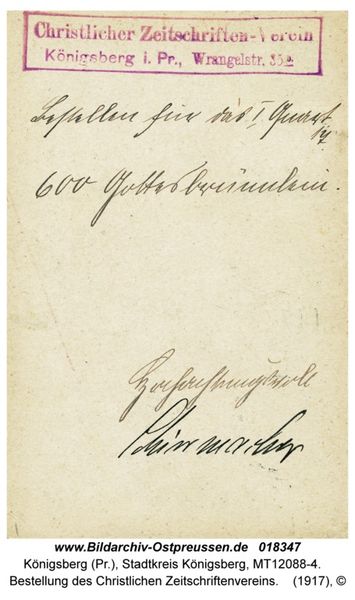 Christlicher Zeitschriften-Verein
Königsberg i. Pr., Wrangelstr. 35a
Bestellen für das I Quart
17
600 Gottesbrünnlein.
Hochachtungsvoll
Schirmacher
www.Bildarchiv-Ostpreussen.de 018347
Königsberg (Pr.), Stadtkreis Königsberg, MT12088-4.
Bestellung des Christlichen Zeitschriftenvereins. (1917), ©